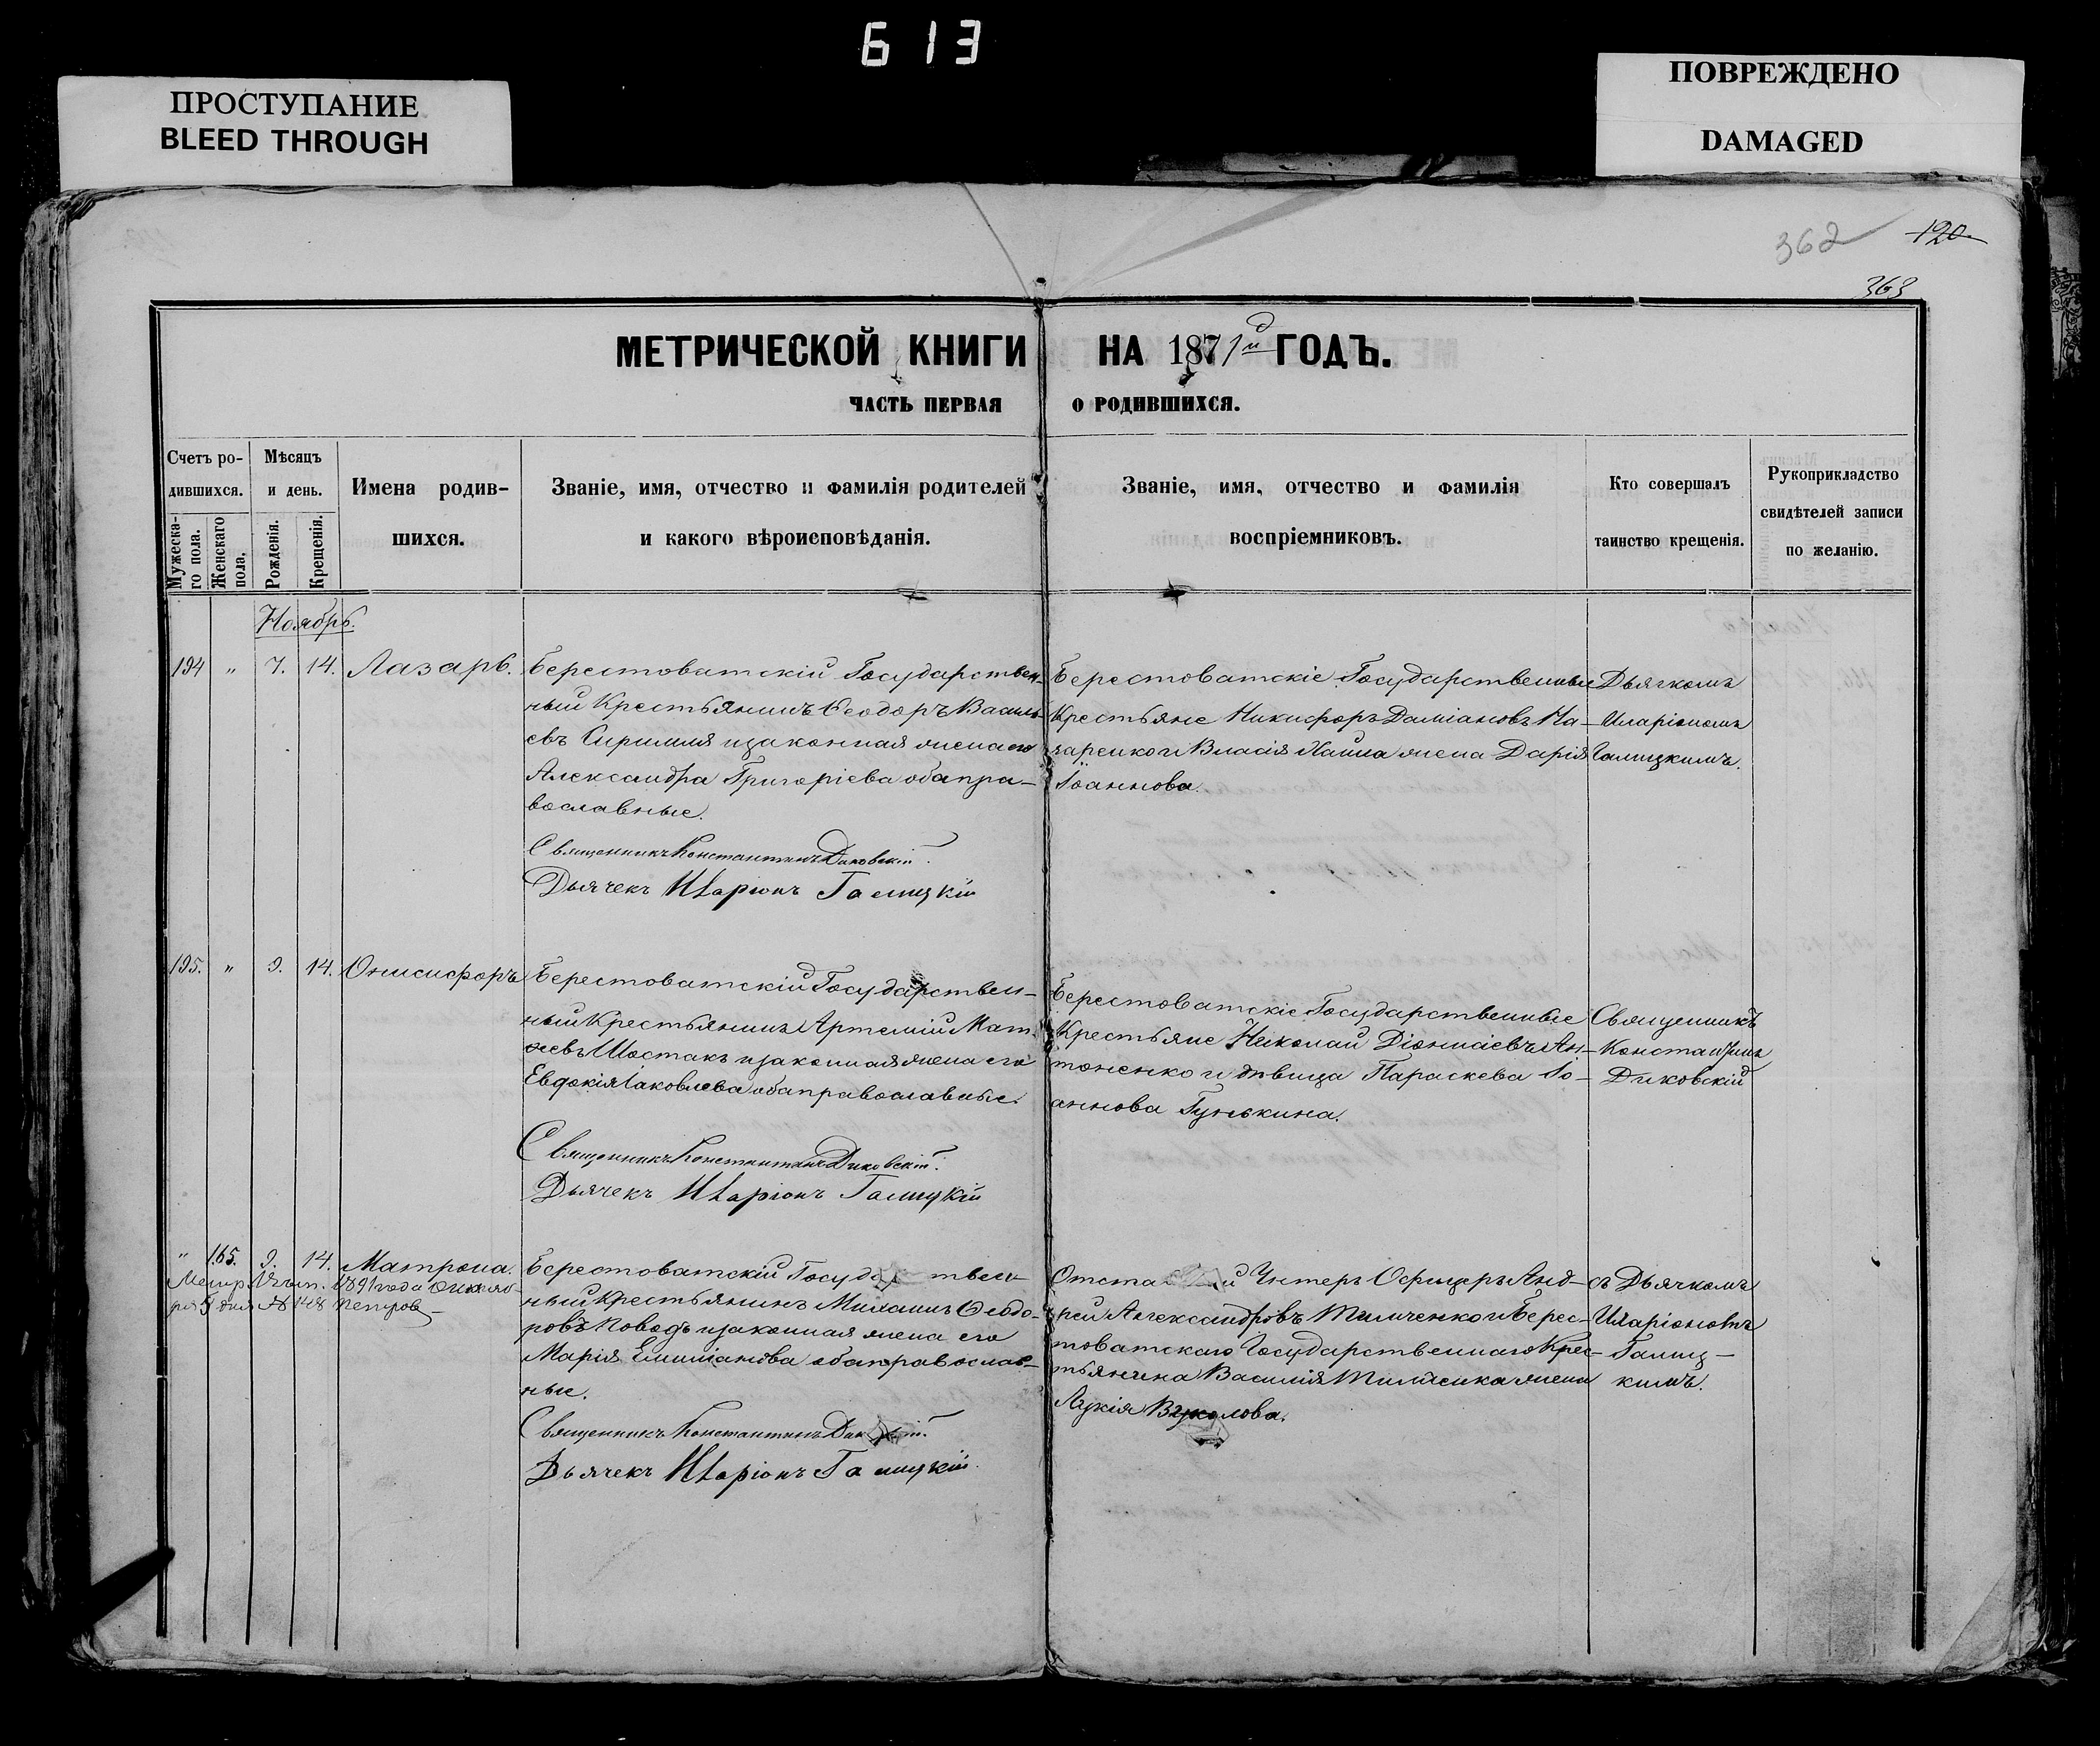 613
ПРОСТУПАНИЕ
BLEED THROUGH
ПОВРЕЖДЕНО
DAMAGED
362
120
363
МЕТРИЧЕСКОЙ КНИГИ НА 1871й ГОДЪ.
ЧАСТЬ ПЕРВАЯ О РОДИВШИХСЯ.
Счетъ ро-
дившихся.
Мужеска-
го пола.
Женскаго
пола.
Мѣсяцъ
и день.
Рожденія.
Крещенія.
Имена родив-
шихся.
Званіе, имя, отчество и фамилія родителей
и какого вѣроисповѣданія.
Званіе, имя, отчество и фамилія
воспріемниковъ.
Кто совершалъ
таинство крещенія.
Рукоприкладство
свидѣтелей записи
по желанію.
Ноябрь.
194 " 7. 14. Лазарь.
Берестоватскій Государствен-
ный Крестьянинъ Ѳеодоръ Василь-
евъ и законная жена его
Александра Григоріева оба пра-
вославные.
Священникъ Константинъ Диковскій.
Дьячекъ Иларіонъ Галицкій
Берестоватскіе Государственные
Крестьяне Никифоръ Даміановъ На-
заренко и Власія жена Дарія
Іоаннова.
Дьячкомъ
Иларіономъ
Галицкимъ.
195. " 9. 14. Онисифоръ
Берестоватскій Государствен-
ный Крестьянинъ Артемій Мат-
ѳеевъ Шостакъ и законная жена его
Евдокія Іаковлева оба православные.
Священникъ Константинъ Диковскій.
Дьячекъ Иларіонъ Галицкій
Берестоватскіе Государственные
Крестьяне Николай Діонисіевъ Ан-
тоненко и дѣвица Параскева Іо-
аннова Гунькина.
Священникъ
Константинъ
Диковскій
" 165. 9. 14. Матрона.
Метр. 1891 года
5 дня № 148
Берестоватскій Госуда твен-
ный Крестьянинъ Михаилъ Ѳеодо-
ровъ и законная жена его
Марія Емиліанова оба православ-
ные.
Священникъ Константинъ Дик ій.
Дьячекъ Иларіонъ Галицкій.
Отста й Унтеръ Офицеръ Анд-
рей Александровъ Тимченко и Берес-
товатскаго Государственнаго Крес-
тьянина Василія Тимченка жена
Лукія Вуколова.
съ Дьячкомъ
Иларіономъ
Галиц-
кимъ.